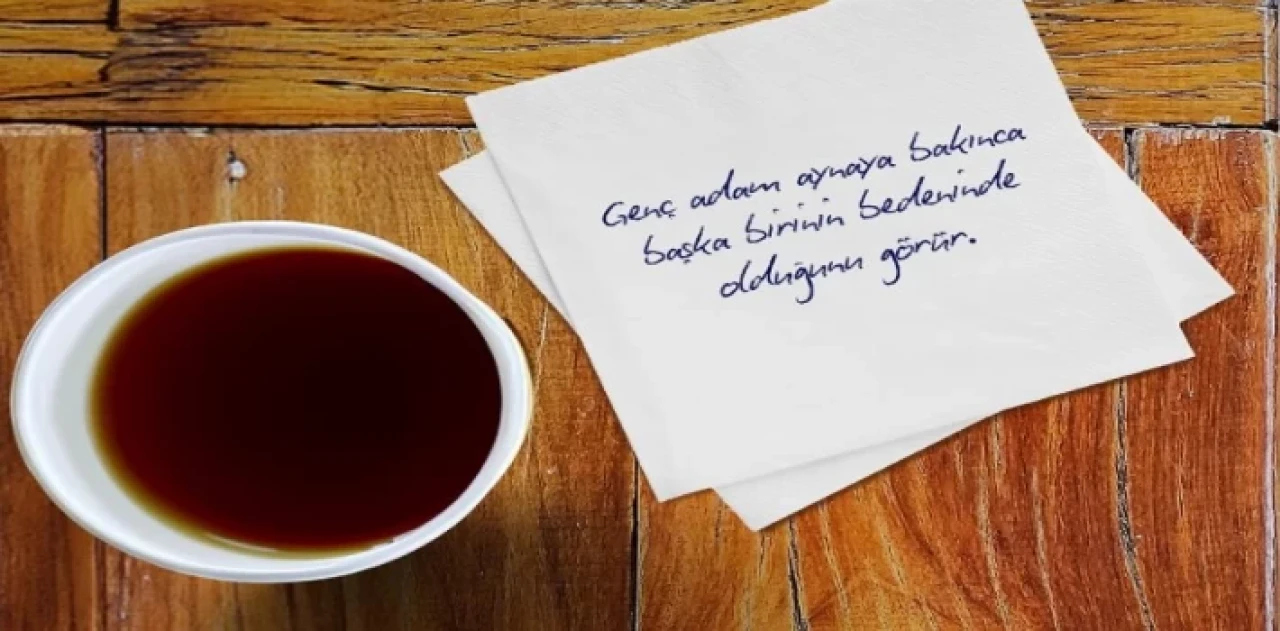 Genç adam aynaya bakınca
başka birinin bedeninde
olduğunu görür.